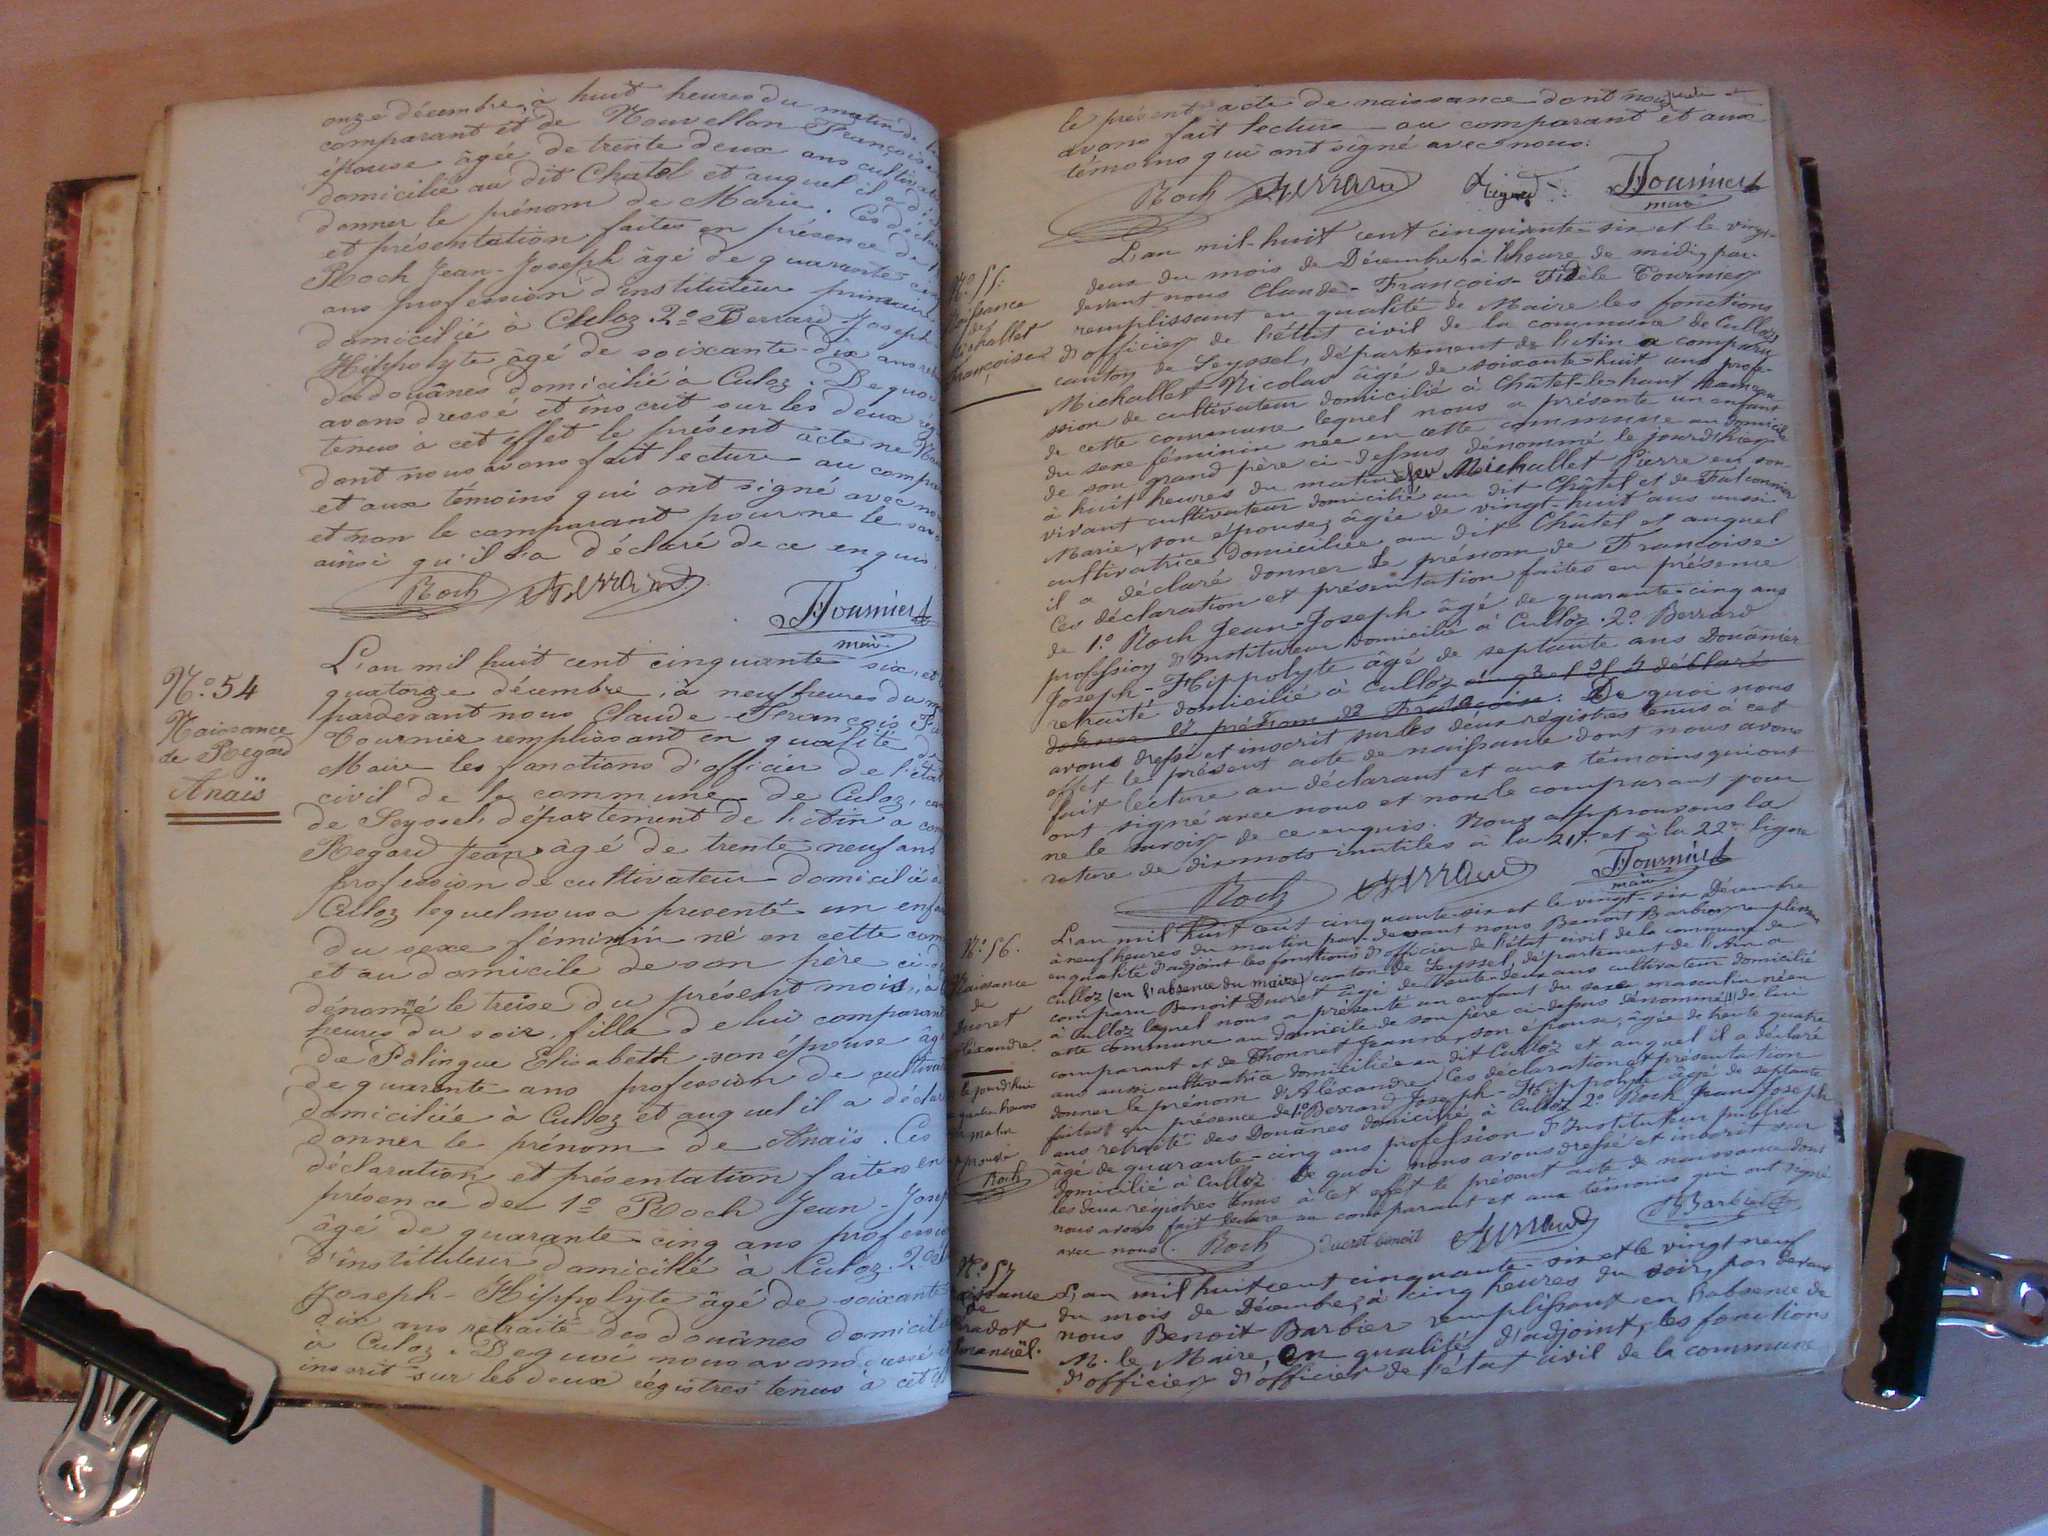 onze décembre, à huit heures du matin de
comparant et de Nouvellon François
épouse âgée de trente deux ans
domicilié au dit Chatel et auquel il a
donner le prénom de Marie. Ces
et présentation faites en présence de
Roch Jean-Joseph âgé de quarante
ans profession d'instituteur primaire
domicilié à Culoz. 2º Berrard Joseph
Hippolyte âgé de soixante-dix ans
de douânes domicilié à Culoz. De quoi
avons dressé et inscrit sur les deux
tenus à cet effet le présent acte de
dont nous avons fait lecture au
et aux témoins qui ont signé avec
et non le comparant pour ne le
ainsi qu'il l'a déclaré de ce enquis.
Roch
Fournier
maire
Nº 54
Naissance
de Regard
Anaïs
L'an mil huit cent cinquante six, et
quatorze décembre, à neuf heures du
pardevant nous Claude-François
Tournier remplissant en qualité de
Maire les fonctions d'officier de l'état
civil de la commune de Culoz,
de Seyssel, département de l'Ain a
Regard Jean, âgé de trente neuf ans
profession de cultivateur domicilié à
Culoz lequel nous a presenté un
du sexe féminin né en cette
et au domicile de son père
dénommé le treise du présent mois, à
heures du soir, fille de lui comparant
de Polingue Elisabeth son épouse
de quarante ans profession de
domiciliée à Culloz et auquel il a
donner le prénom de Anaïs. Ces
déclaration et présentation faites en
présence de 1º Roch Jean-
âgé de quarante cinq ans
d'instituteur domicilié à Culoz. 2º
Joseph-Hippolyte âgé de soixante
dix ans retraité des douânes
à Culoz. De quoi nous avons dressé
inscrit sur les deux régistres tenus à cet
le présent acte de naissance dont nous
avons fait lecture au comparant et aux
témoins qui ont signé avec nous:
Roch Berrard Regard Fournier
maire
Nº 55.
Naissance
de
Michallet
Françoise
L'an mil-huit cent cinquante-six et le vingt-
deux du mois de Décembre, à l'heure de midi, par-
devant nous Claude-François-Fidèle Tournier
remplissant en qualité de Maire les fonctions
d'officier de l'état civil de la commune de Culloz,
canton de Seyssel, département de l'Ain a comparu
Michallet Nicolas âgé de soixante-huit ans profe-
ssion de cultivateur domicilié à Châtel-le-haut hameau
de cette commune lequel nous a présenté un enfant
du sexe féminin née en cette commune au domicile
de son grand père ci-dessus dénommé le jour d'hier
à huit heures du matin de feu Michallet Pierre en son
vivant cultivateur domicilié au dit Châtel et de Falconnier
Marie, son épouse, âgée de vingt-huit ans aussi
cultivatrice domiciliée au dit Châtel et auquel
il a déclaré donner le prénom de Françoise.
Ces déclaration et présentation faites en présence
de 1º Roch Jean-Joseph âgé de quarante-cinq ans
profession d'Instituteur domicilié à Culloz. 2º Berrard
Joseph-Hippolyte âgé de septante ans Douânier
retraité domicilié à Culloz auquel il a déclaré
donner le prénom de Françoise. De quoi nous
avons dressé et inscrit sur les deux régistres tenus à cet
effet le présent acte de naissance dont nous avons
fait lecture au déclarant et aux témoins qui ont
ont signé avec nous et non le comparant pour
ne le savoir de ce enquis. Nous approuvons la
rature de dix mots inutiles à la 21e et à la 22e ligne
Roch Berrard Fournier
maire
Nº 56.
Naissance
de
Ducret
Aléxandre.
L'an mil huit cent cinquante-six et le vingt-six Décembre
à neuf heures du matin par-devant nous Benoit Barbier remplissant
en qualité d'adjoint les fonctions d'officier de l'état civil de la commune de
Culloz (en l'absence du maire) canton de Seyssel, département de l'Ain a
comparu Benoit Ducret âgé de trente-deux ans cultivateur domicilié
à Culloz lequel nous a présenté un enfant du sexe masculin né en
cette commune au domicile de son père ci-dessus dénommé (1) de lui
comparant et de Thonnet Jeanne, son épouse, âgée de trente quatre
ans aussi cultivatrice domiciliée au dit Culloz et auquel il a déclaré
donner le prénom d'Aléxandre. Ces déclaration et présentation
faites en présence de 1º Berrard Joseph-Hippolyte âgé de septante
ans retraité des Douânes domicilié à Culloz 2º Roch Jean-Joseph
âgé de quarante-cinq ans profession d'Instituteur public
domicilié à Culloz. De quoi nous avons dressé et inscrit sur
les deux régistres tenus à cet effet le présent acte de naissance dont
nous avons fait lecture au comparant et aux témoins qui ont signé
avec nous.
le jourd'hui
quatre heures
matin
Roch
Roch Ducret benoit Berrard Barbier
Nº 57
Naissance
de
Emanuël.
L'an mil huit cent cinquante-six et le vingt neuf
du mois de Décembre, à cinq heures du soir, par devant
nous Benoit Barbier remplissant en l'absence de
M. le Maire, en qualité d'adjoint, les fonctions
d'officier d'officier de l'état civil de la commune